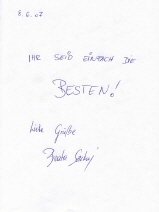 8.6.07
IHR SEID EINFACH DIE
BESTEN!
Liebe Grüße